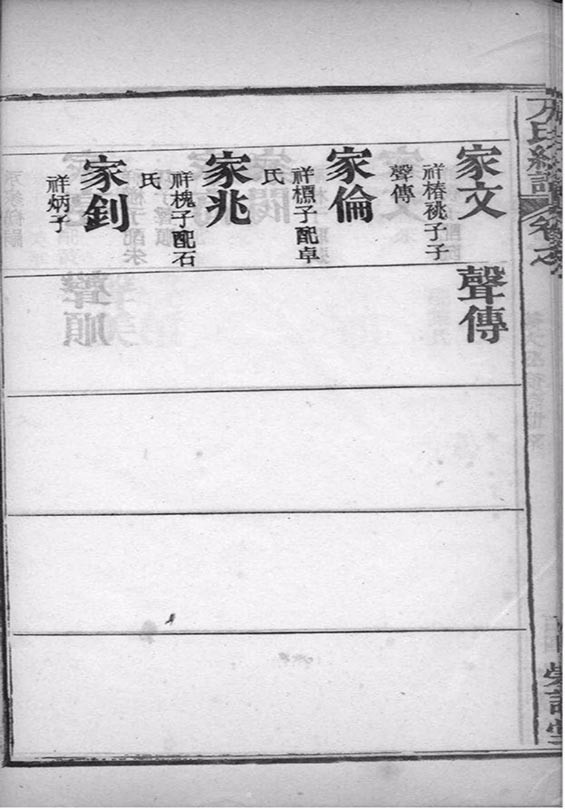 家文
祥椿祧子子
聲傳
聲傳
家倫
祥槱子配卓
氏
家兆
祥槐子配石
氏
家釗
祥炳子